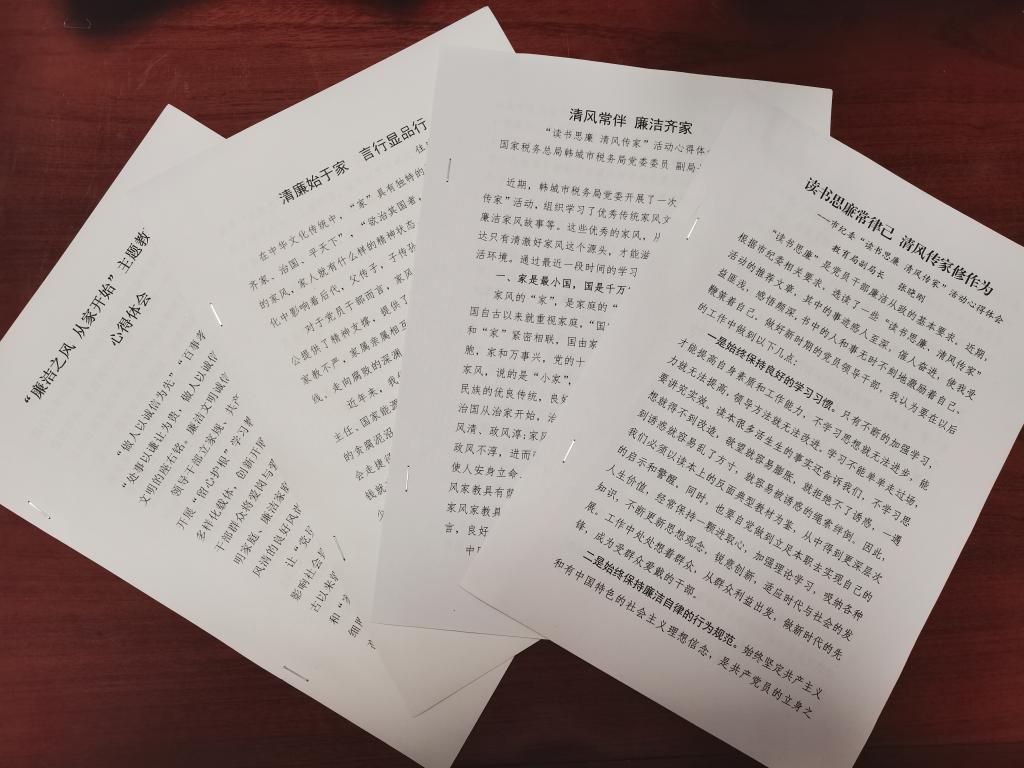 “廉洁之风 从家开始”主题教
心得体会
“做人以诚信为先”“百事孝
“处事以谦让为贵，做人以诚信
文明的座右铭。廉洁文明诚信
领导干部立家规、共产
开展“留心护根”学习教
多样化载体，创新开展
干部群众将爱岗与学
明家庭、廉洁家庭
风清的良好风尚
让“党
影响社会风
古以来就
和“家
细胞
清廉始于家 言行显品行
在中华文化传统中，“家”具有独特的
齐家、治国、平天下”，“欲治其国者，
的家风，家人就有什么样的精神状态
化中影响着后代，父传子，子传孙
对于党员干部而言，家风
公提供了精神支撑，提供了
家教不严，家属亲属相互
线、走向腐败的深渊
近年来，我
主任、国家能源
的贪腐泥沼
会走捷径
钱敛
清风常伴 廉洁齐家
“读书思廉 清风传家”活动心得体会
国家税务总局韩城市税务局党委委员 副局
近期，韩城市税务局党委开展了一次
传家”活动，组织学习了优秀传统家风文
廉洁家风故事等。这些优秀的家风，从
达只有清澈好家风这个源头，才能滋
活环境。通过最近一段时间的学习
一、家是最小国，国是千万
家风的“家”，是家庭的“
国自古以来就重视家庭，“国
和“家”紧密相联，国由家
胞，家和万事兴，党的十
家风，说的是“小家”，
民族的优良传统，良好
治国从治家开始，治
风清、政风淳；家风
政风不淳，进而
使人安身立命
风家教具有
家风家教具
言，良好
中
读书思廉常律己 清风传家修作为
——市纪委“读书思廉 清风传家”活动心得体会
教育局副局长 张晓刚
“读书思廉”是党员干部廉洁从政的基本要求。近期，
根据市纪委相关要求，选读了一些“读书思廉、清风传家”
活动的推荐文章，其中的事迹感人至深，催人奋进，使我受
益匪浅，感悟颇深。书中的人和事无时不刻地激励着自己、
鞭策着自己，做好新时期的党员领导干部，我认为要在以后
的工作中做到以下几点。
一是始终保持良好的学习习惯。只有不断的加强学习，
才能提高自身素质和工作能力、不学习思想就无法进步，能
力就无法提高，领导方法就无法改进。学习不能单单走过场，
要讲究实效。读本很多活生生的事实还告诉我们，不学习思
想就得不到改造，欲望就容易膨胀，就拒绝不了诱惑。一遇
到诱惑就容易乱了方寸，就容易被诱惑的绳索绊倒。因此，
我们必须以读本上的反面典型教材为鉴，从中得到更深层次
的启示和警醒。同时，也要自觉做到立足本职去实现自己的
人生价值，经常保持一颗进取心，加强理论学习，吸纳各种
知识，不断更新思想观念，锐意创新，适应时代与社会的发
展。工作中处处想着群众，从群众利益出发，做新时代的先
锋，成为受群众爱戴的干部。
二是始终保持廉洁自律的行为规范。始终坚定共产主义
和有中国特色的社会主义理想信念，是共产党员的立身之